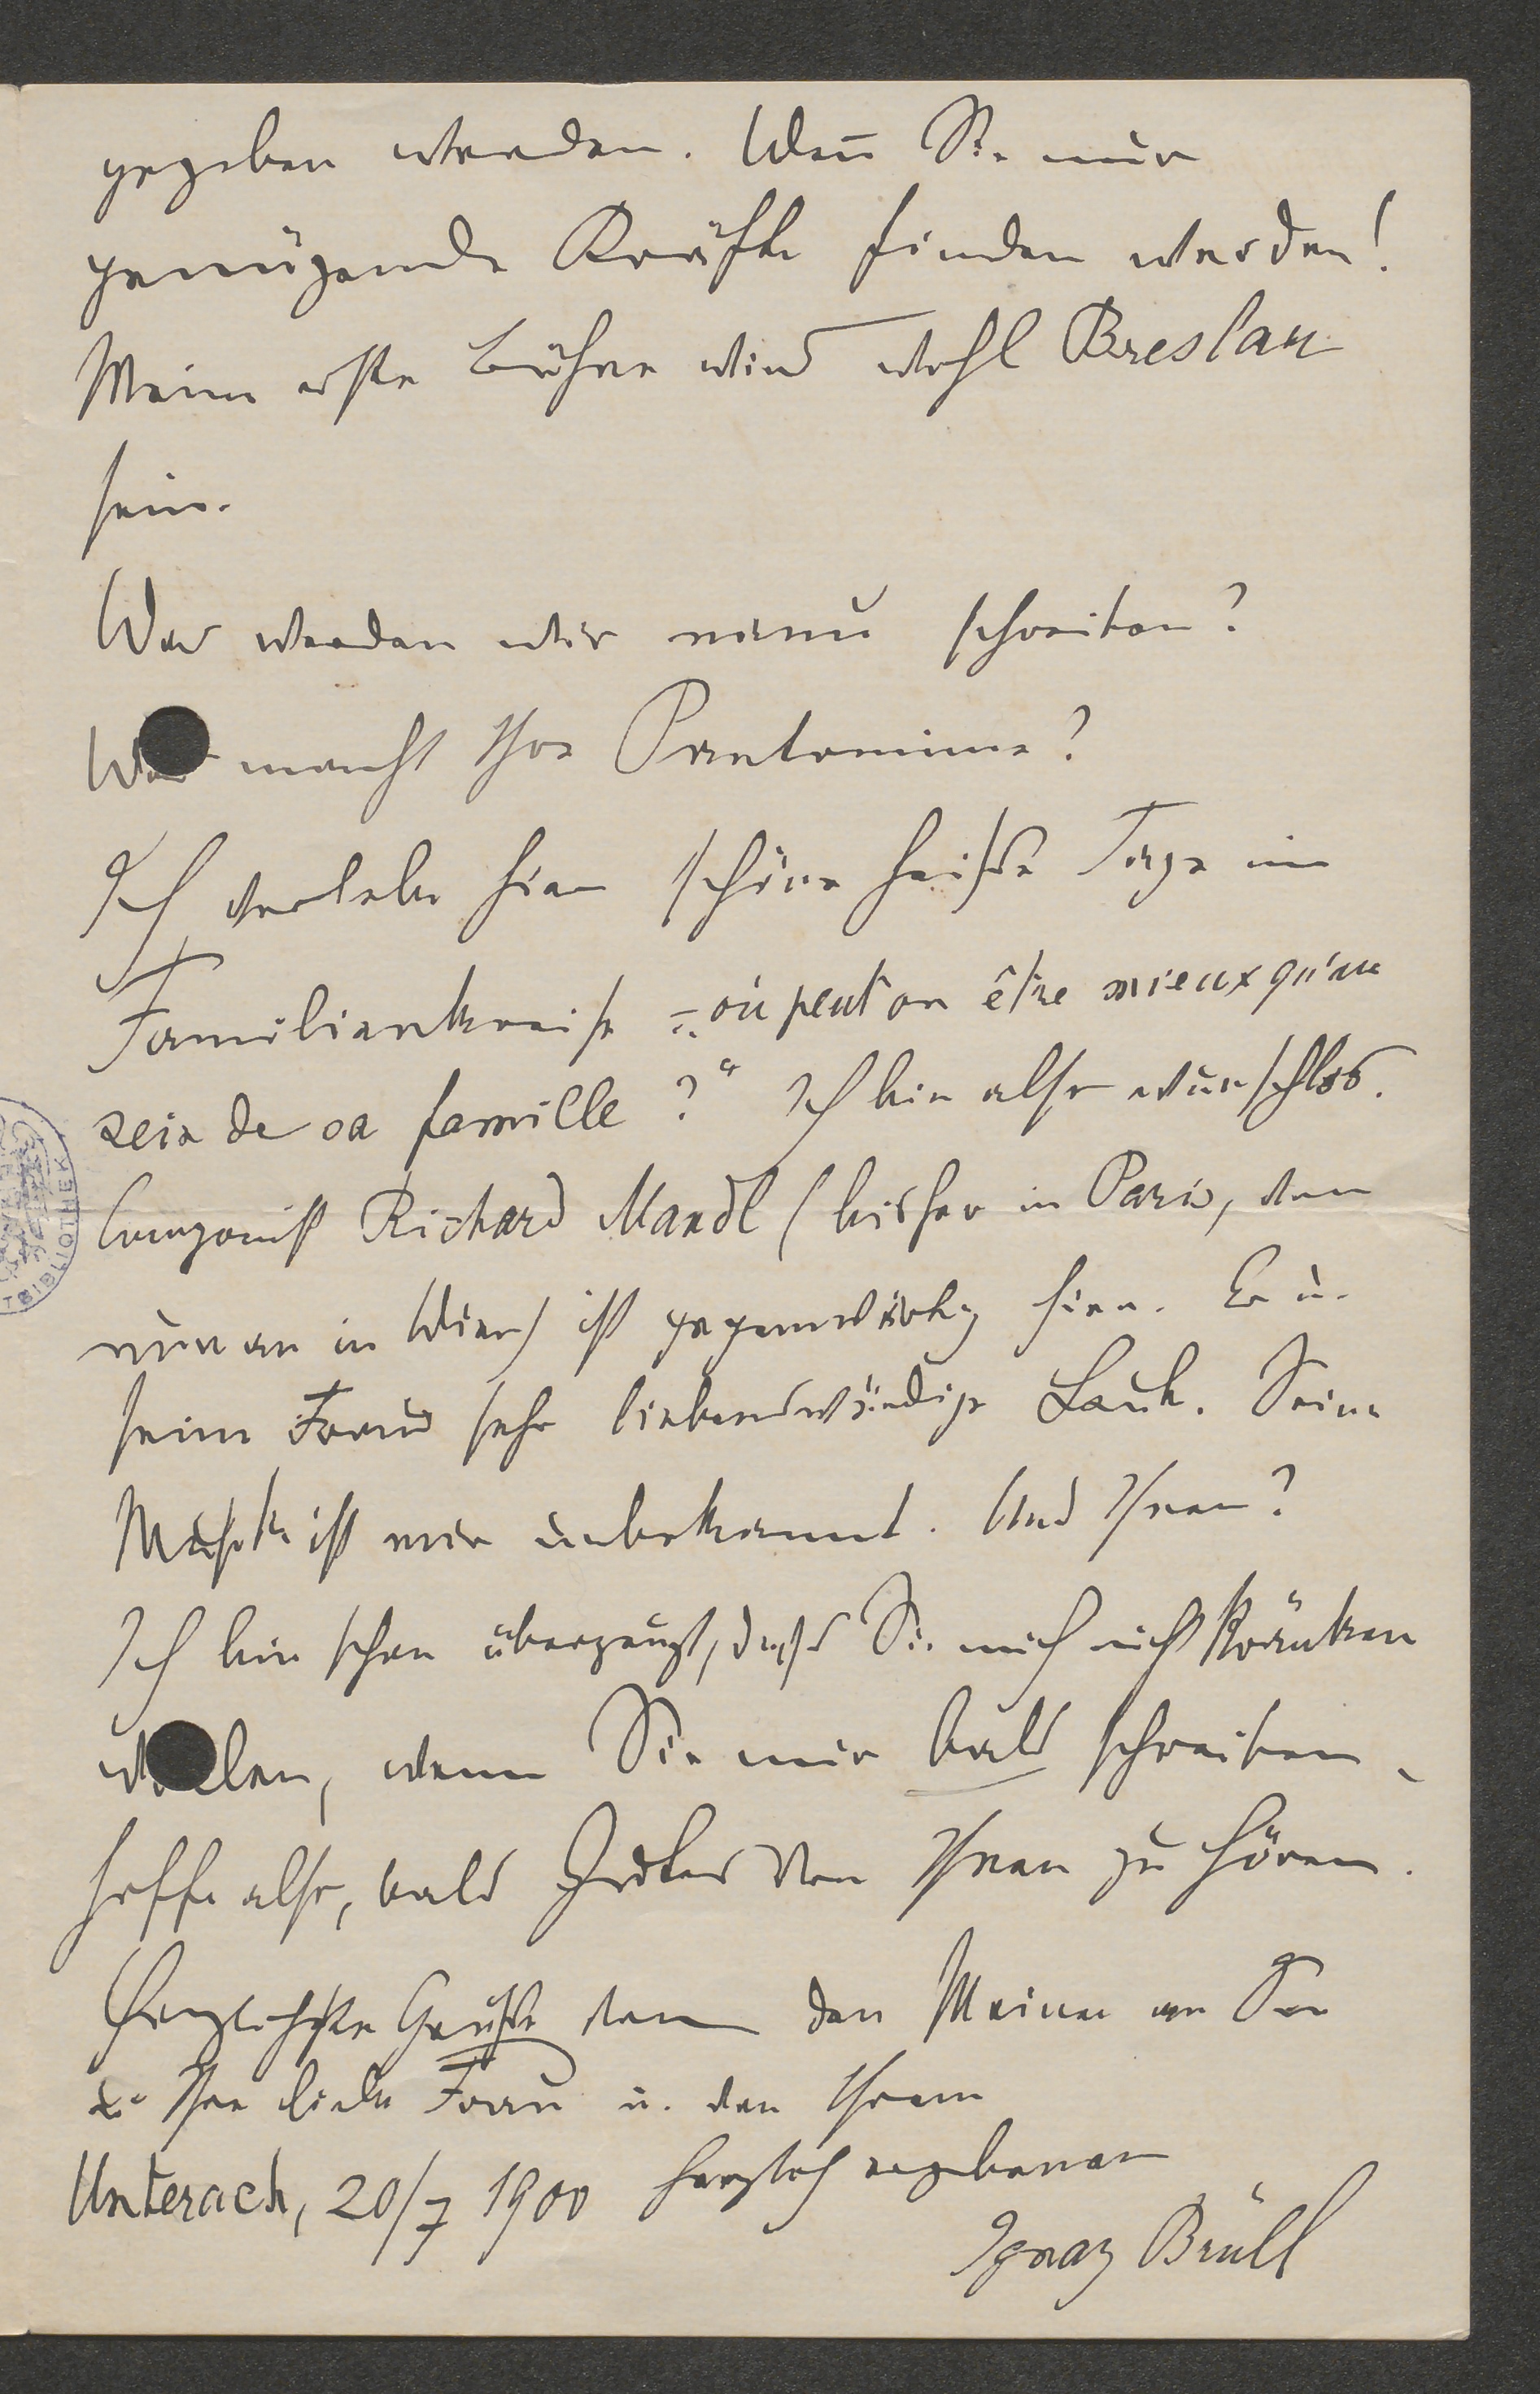 gegeben werden. Weñ Sie nur
genügende Kräfte finden werden!
Meine erste Bühne wird wohl Breslau
sein.
Was werden wir nun schreiben?
Was macht Ihre Pantomime?
Ich verlebe hier schöne heiße Tage im
Familienkreise – „où peut on être mieux qu'au
sein de sa famille?“ Ich bin also wunschlos.
Componist Richard Mandl (bisher in Paris, von
nun an in Wien) ist gegenwärtig hier. Er u.
seine Frau sehr liebenswürdige Leute. Seine
Musik ist mir unbekannt. Und Ihnen?
Ich bin schon überzeugt, dass Sie mich nicht kränken
wollen, wenn Sie mir bald schreiben,
hoffe also, bald Gutes von Ihnen zu hören.
Herzlichste Grüße von den Meinen an Sie
u. Ihre liebe Frau u. von Ihrem
herzlich ergebenen
Unterach, 20/7 1900
Ignaz Brüll
TSBIBLIOTHEK